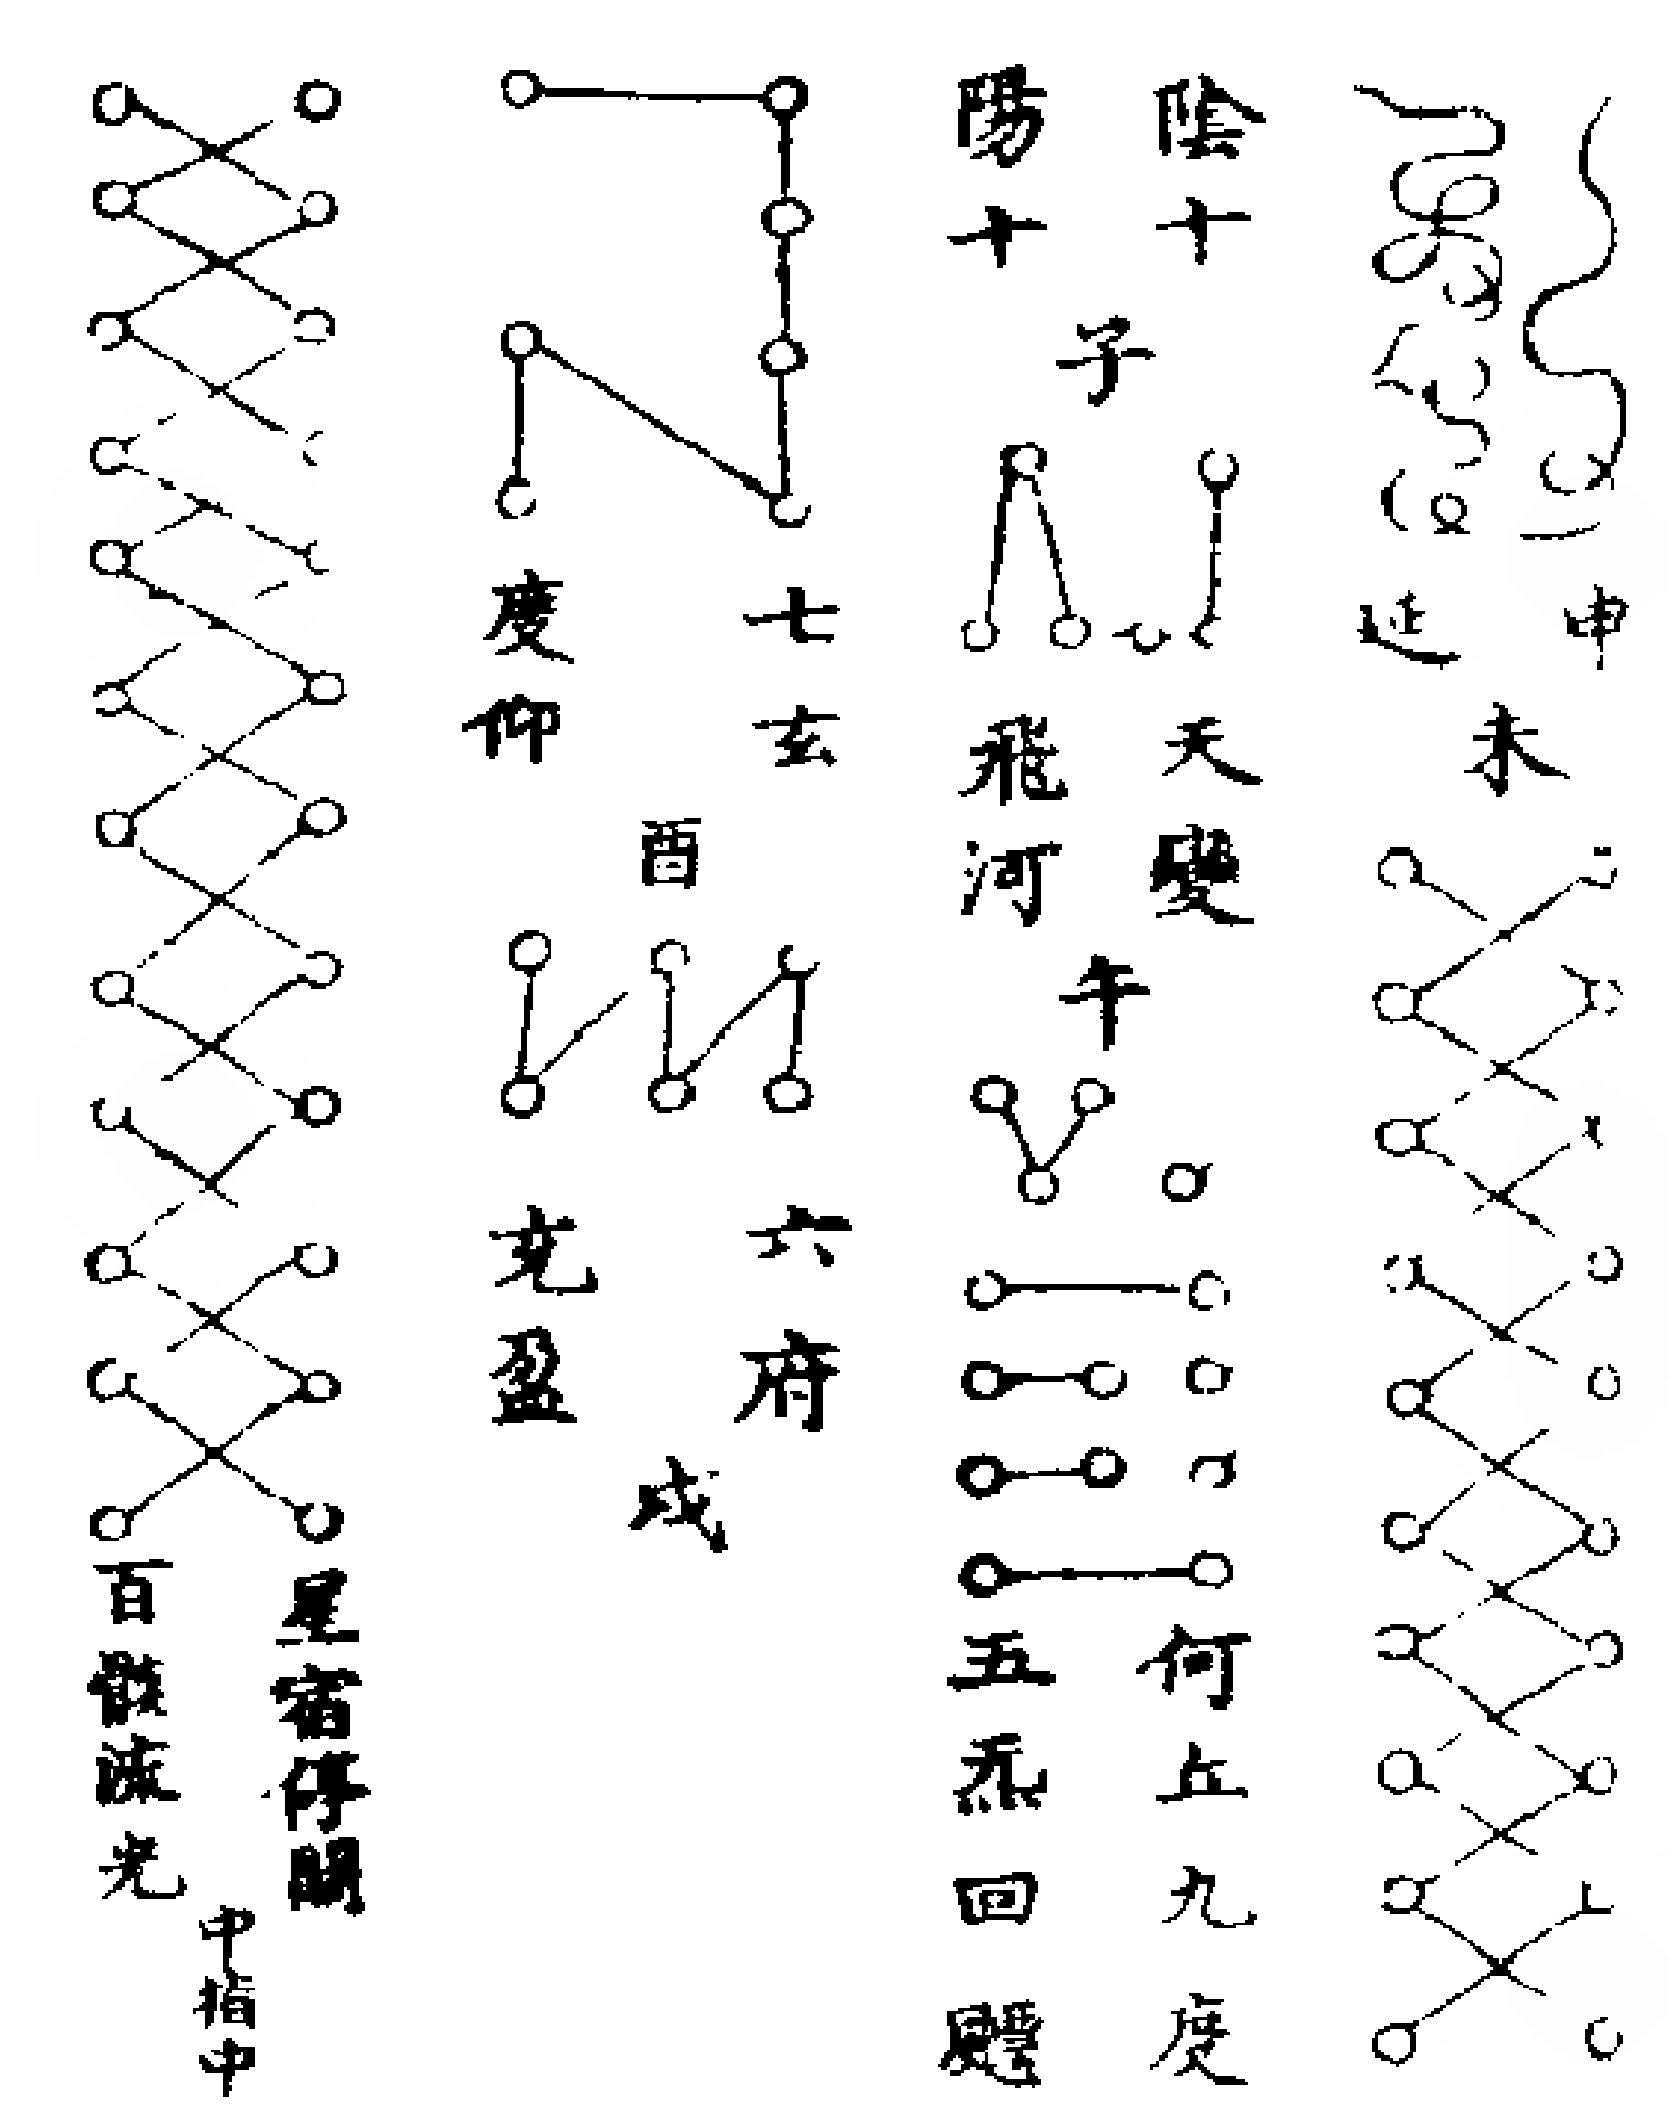 申
延
未
陰十
陽十
子
天變
飛河
午
何丘九度
五炁回
七玄
度仰
酉
六府
充盈
戌
星宿停
百骸流光
中指中